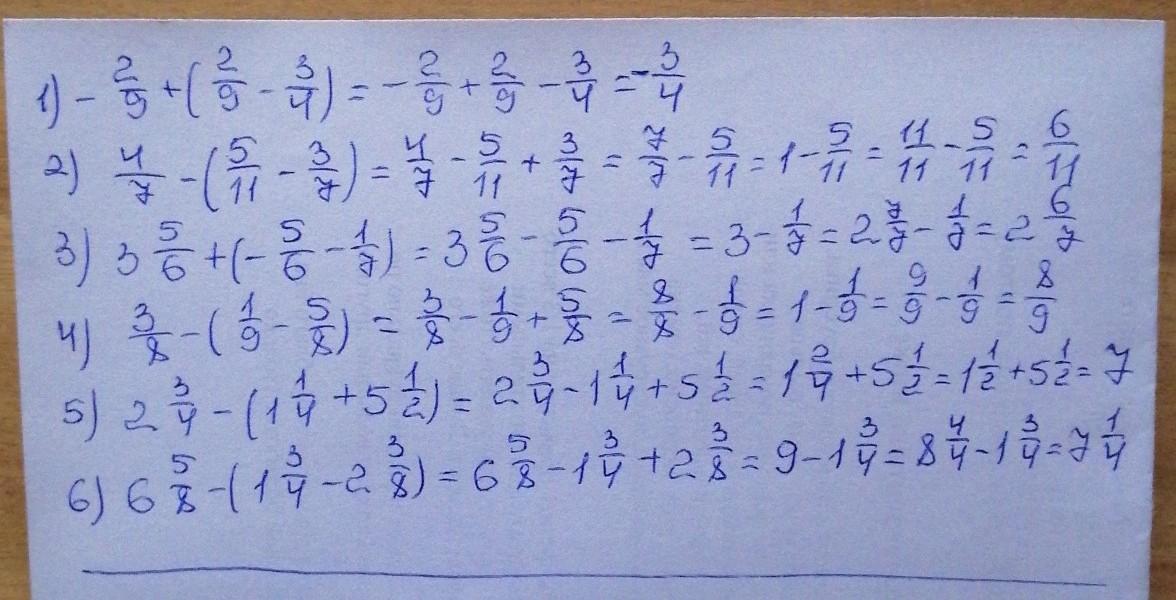 1) - 2/9 + (2/9 - 3/4) = - 2/9 + 2/9 - 3/4 = - 3/4
2) 4/7 - (5/11 - 3/7) = 4/7 - 5/11 + 3/7 = 7/7 - 5/11 = 1 - 5/11 = 11/11 - 5/11 = 6/11
3) 3 5/6 + (- 5/6 - 1/7) = 3 5/6 - 5/6 - 1/7 = 3 - 1/7 = 2 7/7 - 1/7 = 2 6/7
4) 3/8 - (1/9 - 5/8) = 3/8 - 1/9 + 5/8 = 8/8 - 1/9 = 1 - 1/9 = 9/9 - 1/9 = 8/9
5) 2 3/4 - (1 1/4 + 5 1/2) = 2 3/4 - 1 1/4 + 5 1/2 = 1 2/4 + 5 1/2 = 1 1/2 + 5 1/2 = 7
6) 6 5/8 - (1 3/4 - 2 3/8) = 6 5/8 - 1 3/4 + 2 3/8 = 9 - 1 3/4 = 8 4/4 - 1 3/4 = 7 1/4